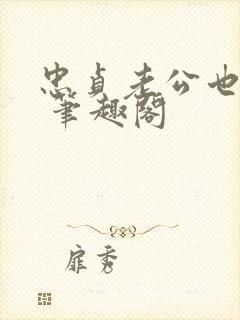 忠贞老公也
笔趣阁
扉秀